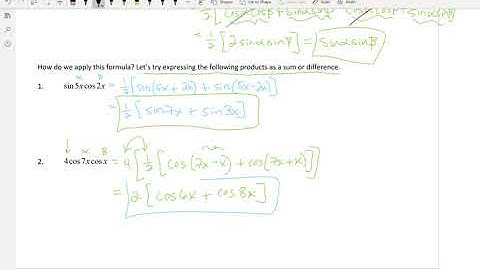 = 1/2 [2 sinα sinβ] = sinα sinβ
How do we apply this formula? Let's try expressing the following products as a sum or difference.
α β
1. sin 5x cos 2x = 1/2 [sin(5x + 2x) + sin(5x - 2x)]
= 1/2 [sin7x + sin3x]
↓ α β
2. 4 cos 7x cos x = 4 [1/2 [cos(7x - x) + cos(7x + x)]]
= 2 [cos6x + cos8x]